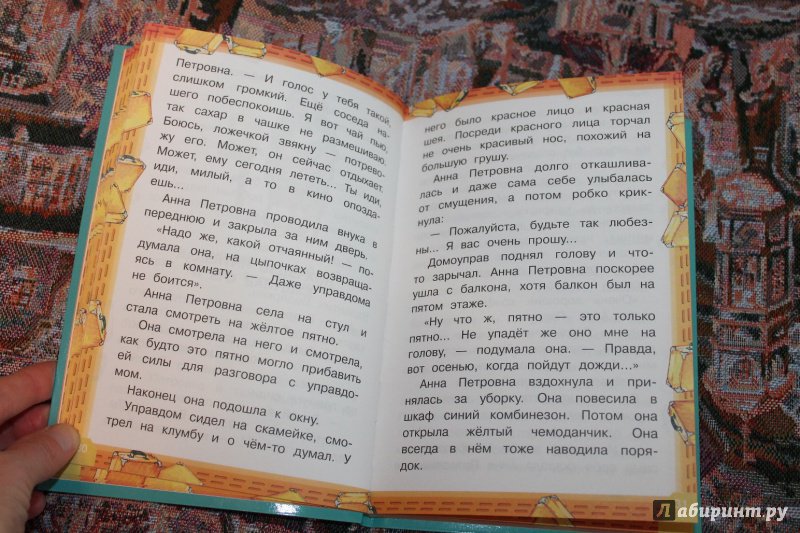 Петровна. — И голос у тебя такой,
слишком громкий. Ещё соседа на-
шего побеспокоишь. Я вот чай пью,
так сахар в чашке не размешиваю.
Боюсь, ложечкой звякну — потрево-
жу его. Может, он сейчас отдыхает.
Может, ему сегодня лететь... Ты иди,
иди, милый, а то в кино опозда-
ешь...
Анна Петровна проводила внука в
переднюю и закрыла за ним дверь.
«Надо же, какой отчаянный! — по-
думала она, на цыпочках возвраща-
ясь в комнату. — Даже управдома
не боится».
Анна Петровна села на стул и
стала смотреть на жёлтое пятно.
Она смотрела на него и смотрела,
как будто это пятно могло прибавить
ей силы для разговора с управдо-
мом.
Наконец она подошла к окну.
Управдом сидел на скамейке, смо-
трел на клумбу и о чём-то думал. У
него было красное лицо и красная
шея. Посреди красного лица торчал
не очень красивый нос, похожий на
большую грушу.
Анна Петровна долго откашлива-
лась и даже сама себе улыбалась
от смущения, а потом робко крик-
нула:
— Пожалуйста, будьте так любез-
ны... Я вас очень прошу...
Домоуправ поднял голову и что-
то зарычал. Анна Петровна поскорее
ушла с балкона, хотя балкон был на
пятом этаже.
«Ну что ж, пятно — это только
пятно... Не упадёт же оно мне на
голову, — подумала она. — Правда,
вот осенью, когда пойдут дожди...»
Анна Петровна вздохнула и при-
нялась за уборку. Она повесила в
шкаф синий комбинезон. Потом она
открыла жёлтый чемоданчик. Она
всегда в нём тоже наводила поря-
док.
Лабиринт.ру